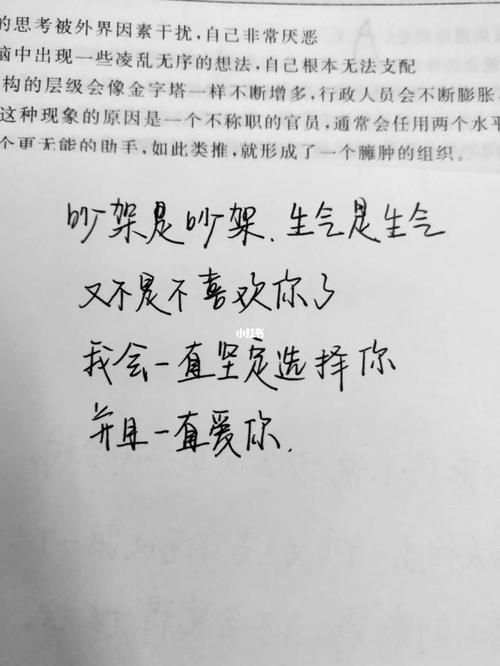 的思考被外界因素干扰，自己非常厌恶
脑中出现一些凌乱无序的想法，自己根本无法支配
构的层级会像金字塔一样不断增多，行政人员会不断膨胀
这种现象的原因是一个不称职的官员，通常会任用两个水平
个更无能的助手，如此类推，就形成了一个臃肿的组织。
吵架是吵架、生气是生气
又不是不喜欢你了
小红书
我会一直坚定选择你
并且一直爱你.